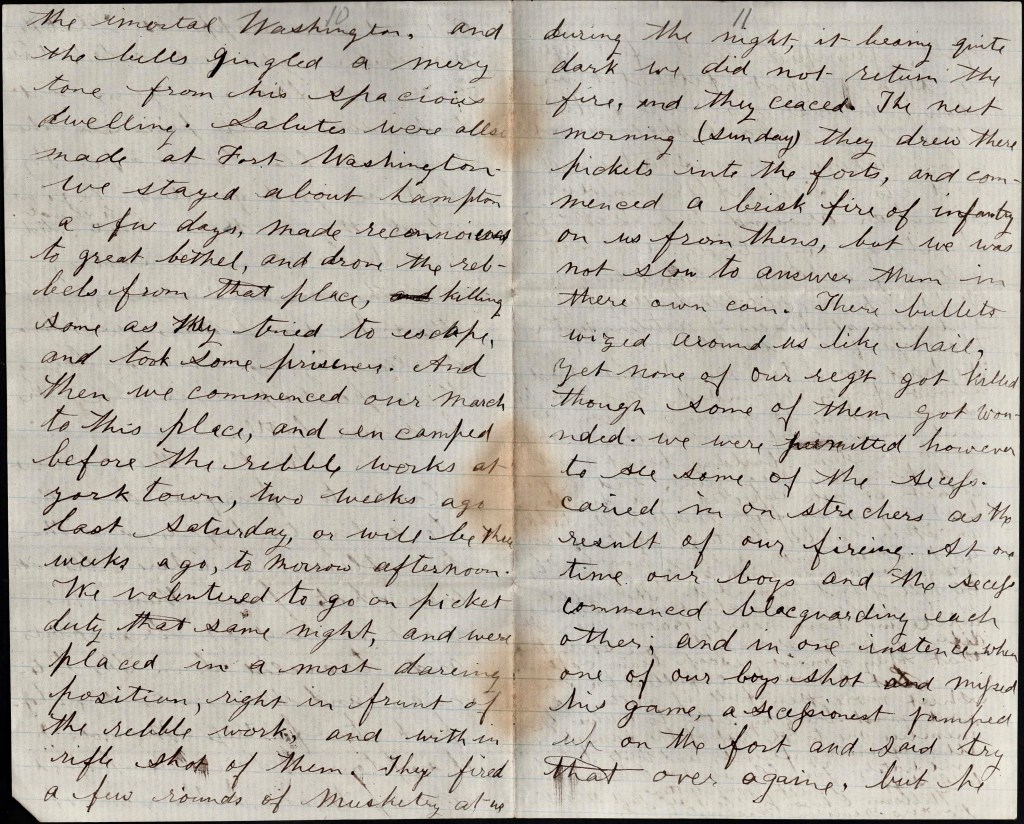 10
the imortal Washington. and
the bells gingled a mery
tone from his spacious
dwelling. Salutes were allso
made at Fort Washington.
We stayed about hampton
a few days, made
to great bethel, and drove the reb-
bels from that place, and killing
some as they tried to escape,
and took some prisners. And
then we commenced our march
to this place, and encamped
before the rebble works at
york town, two weeks ago
last Saturday, or will be three
weeks ago, to morrow afternoon.
We valentered to go on picket
duty that same night, and were
placed in a most dareing
position, right in frunt of
the rebble work, and within
rifle shot of them. They fired
a few rounds of musketry at us
11
during the night, it beaing quite
dark we did not return the
fire, and they ceaced. The next
morning (Sunday) they drew there
pickets into the forts, and com-
menced a brisk fire of infantry
on us from thens, but we was
not slow to answer them in
there own coin. There bullets
wized around us like hail,
yet none of our regt got killed
though some of them got wou-
nded. we were permitted however
to see some of the secess.
caried in on strechers as the
result of our fireing. At one
time our boys and the secess
commenced blacguarding each
other; and in one instence when
one of our boys shot and missed
his game, a secessionest jumped
up on the fort and said try
that over againe, but he